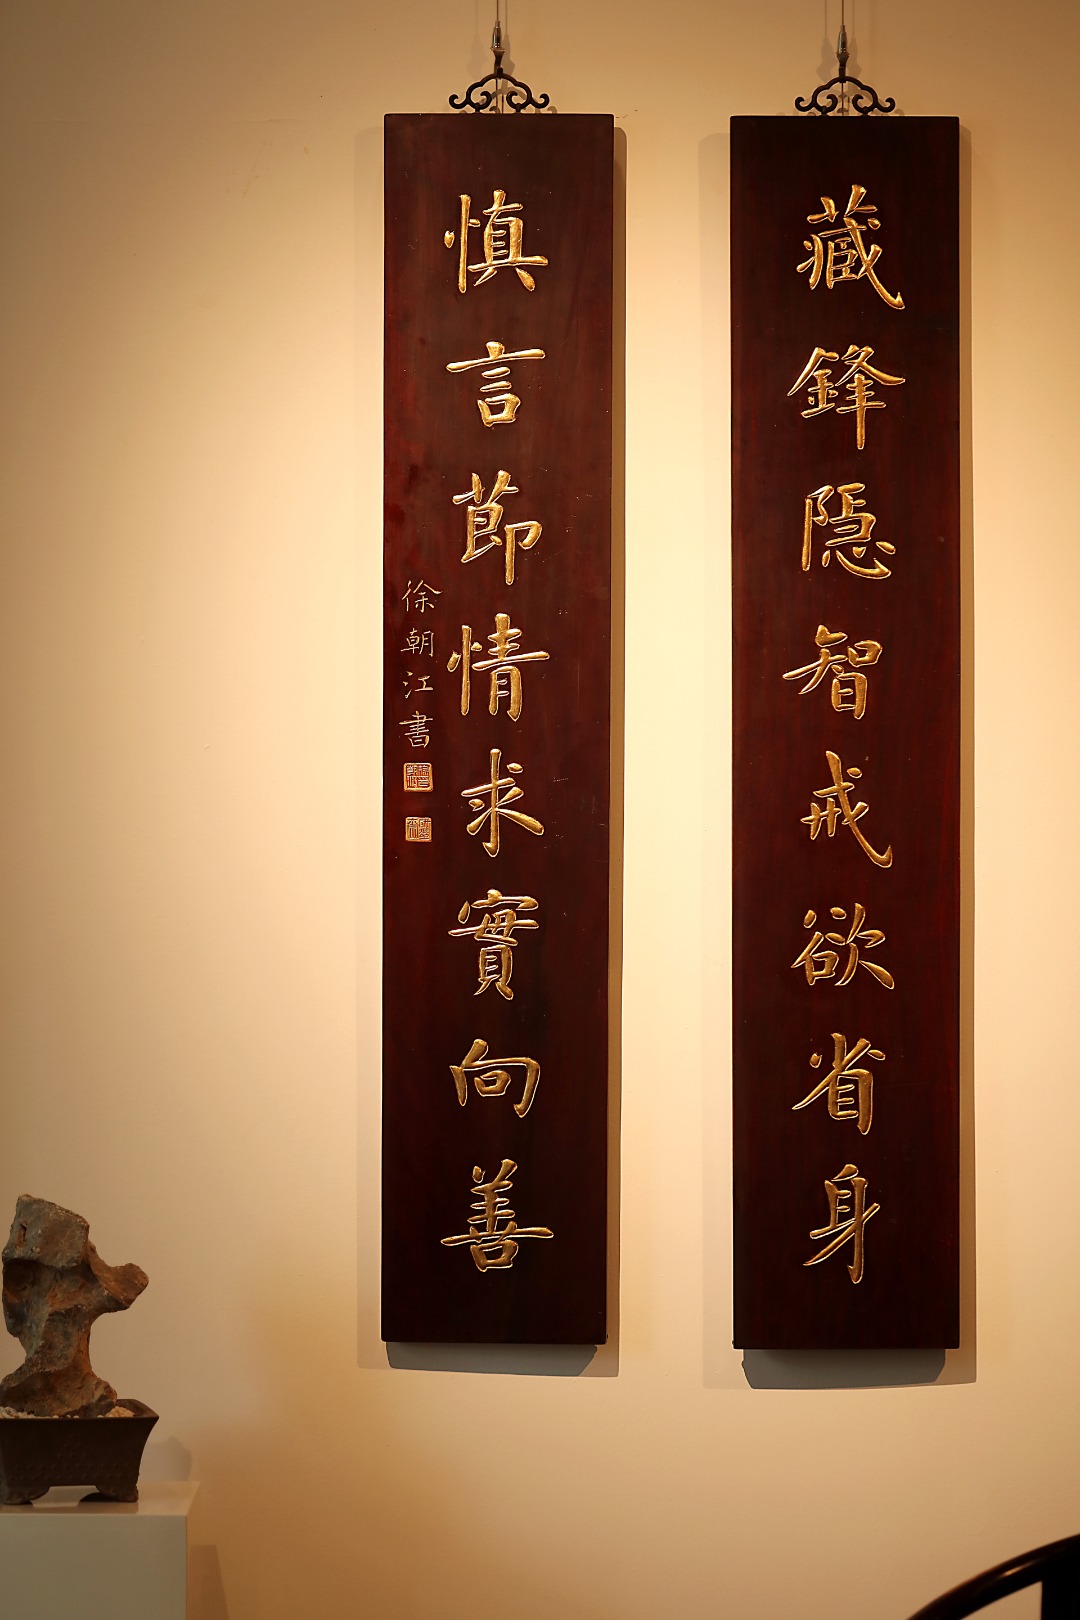 藏鋒隐智戒欲省身
慎言節情求實向善
徐朝江書